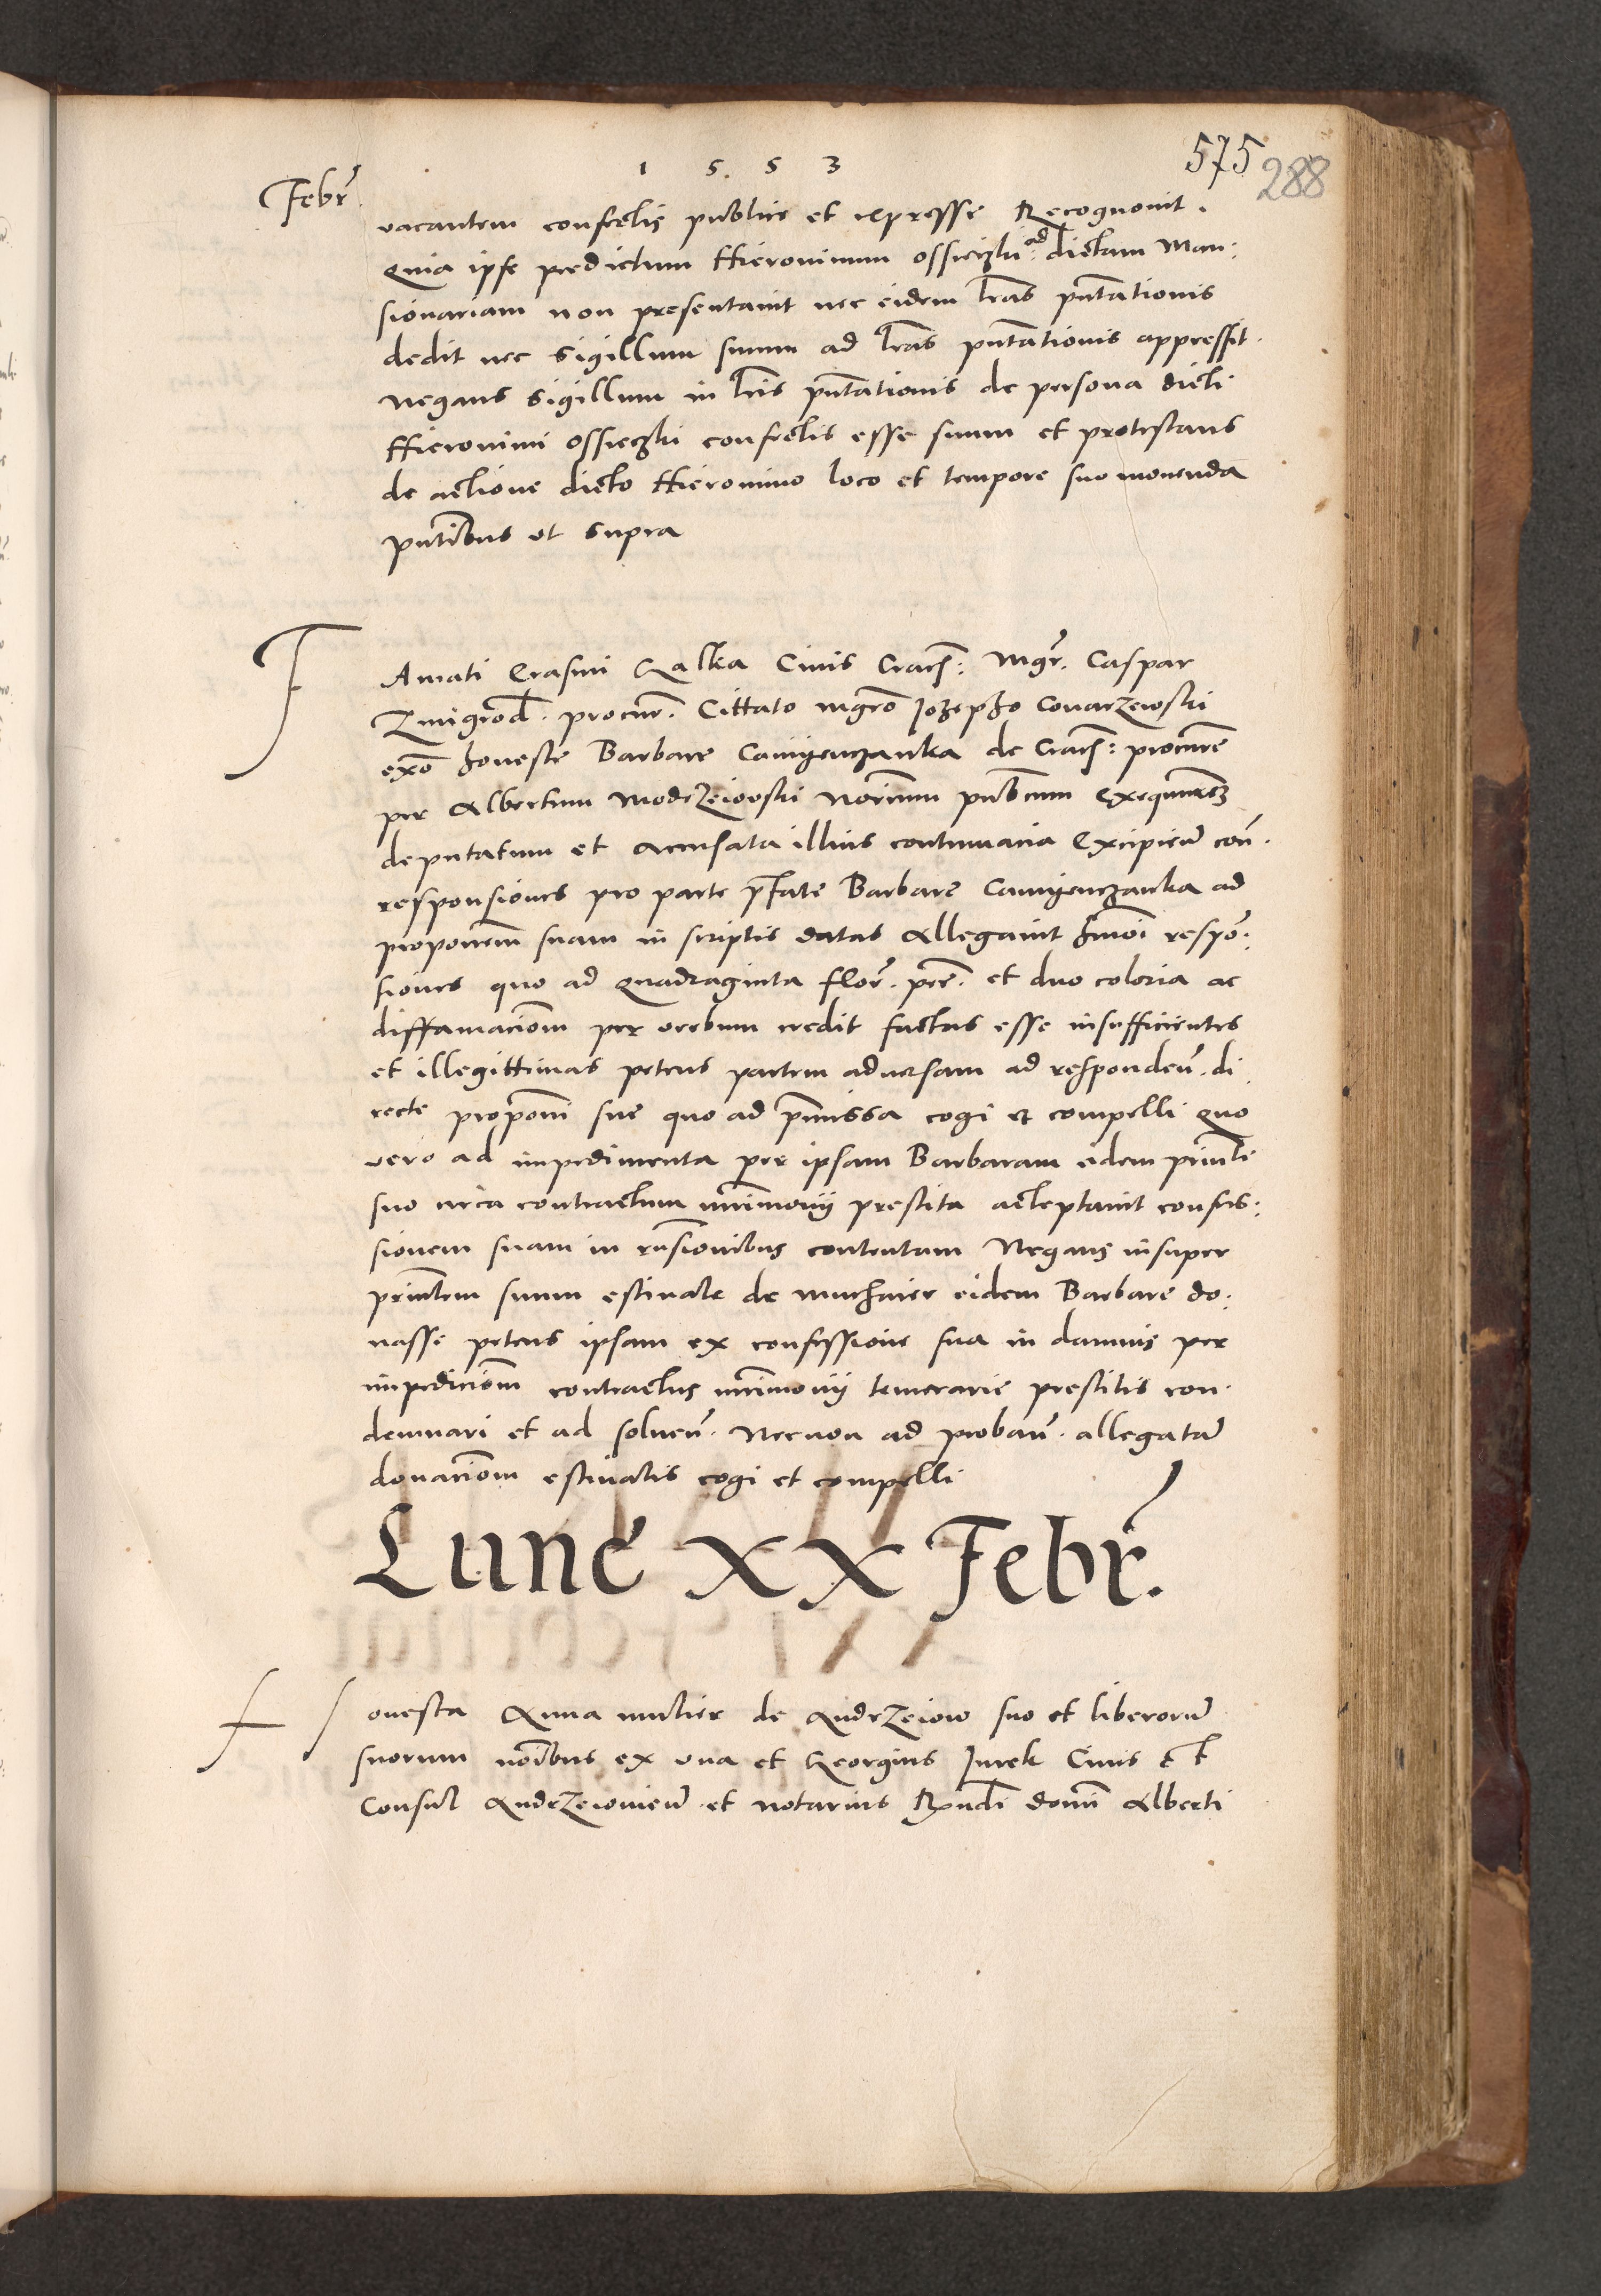 1 5 5 3
575
288
Febr
vacantem confectis publice et expresse Recognouit.
Quia ipse predictum Hieronimum Ossieczki ad dictam Man:
sionariam non presentauit nec eidem lras pntationis
dedit nec sigillum suum ad lras pntationis appressit.
negans sigillum in lris pntationis de persona dicti
Hieronimi Ossieczki confectis esse suum et protestans
de actione dicto Hieronimo loco et tempore suo mouenda
pntibus vt supra
Famati Erasmi Galka Ciuis Crac: Mgr. Caspar
Zmigrod. procur. Cittato mgro Iozepho Conarzewski
exo honeste Barbare Camyenczanka de Crac: procure
per Albertum Modrzeiowski Norium publicum
deputatum et accusata illius contumacia Excipien con.
responsiones pro parte pfate Barbare Camyenczanka ad
proponem suam in scriptis datas Allegauit hmoi respon:
siones quo ad quadraginta flor. pec. et duo coloria ac
diffamaciom per verbum credit factas esse insufficientes
et illegittimas petens partem aduersam ad responden. di
recte proponi sue quo ad pmissa cogi et compelli quo
vero ad impedimenta per ipsam Barbaram eidem princli
suo circa contractum mrimonij prestita acceptauit confes:
sionem suam in rnsionibus contentam Negans insuper
princlem suum estiuale de muchaier eidem Barbare do:
nasse petens ipsam ex confessione sua in damnis per
impediciom contractus mrimonij temerarie prestitis con.
demnari et ad soluen. Necnon ad proban. allegatam
donaciom estiualis cogi et compelli
Lune XX Febr.
Honesta Anna mulier de Andrzeiow suo et liberorum
suorum noibus ex vna et Georgius Jurek Ciuis et
Consul Andrzeiouien. et notarius Rxndi domi Alberti